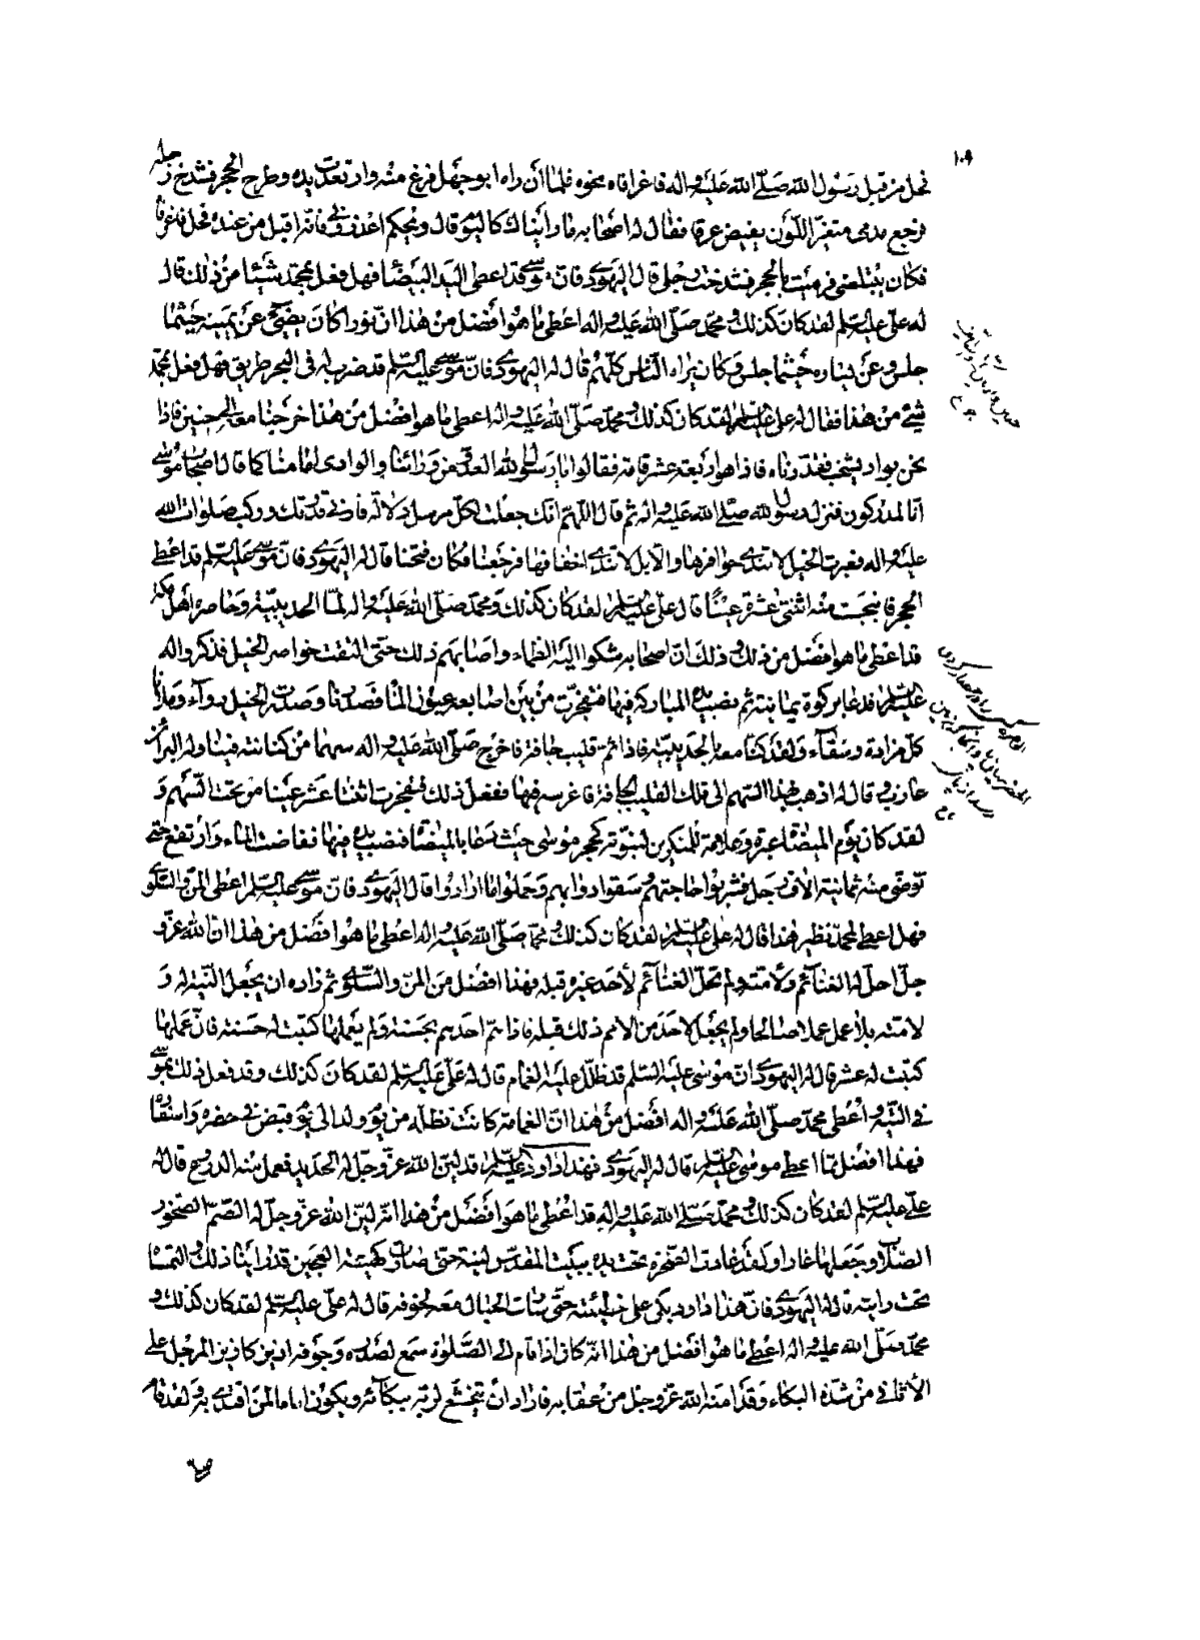 ١٠٩
فحل من قبل رسول الله صلّى الله عليه واله فاغرا فاه نحوه فلما أن راه ابوجهل فزع منه وارتعدت يده وطرح الحجر فشدخ رجله
فرجع مدمى متغيّر اللّون يفيض عرقا فقال له اصحابه ما رأيناك كاليوم قال ويحكم اعذروني فانه اقبل من عنده فحل فاغرفاه
فكان يبتلعني فرميت بالحجر فشدخت رجلي قال له اليهودي فان موسى قد اعطى اليد البيضا فهل فعل بمحمّد شيئا من ذلك قال
له علي عليه السّلم لقد كان كذلك ومحمّد صلّى الله عليه واله اعطى ما هو افضل من هذا انّ نورا كان يضئ عن يمينه حيثما
جلس وعن يساره حيثما جلس وكان يراه النّاس كلّهم قال له اليهودي فانّ موسى عليه السّلم قد ضرب له في البحر طريق فهل فعل بمحمّد
شئ من هذا فقال له علي عليه السّلم لقد كان كذلك ومحمّد صلّى الله عليه واله اعطى ما هو افضل من هذا خرجنا معه الى حنين فاذا
نحن بواد يشخب فقدّرناه فاذا هو اربعة عشر قامة فقالوا يا رسول الله العدوّ من ورائنا والوادي امامنا كما قال اصحاب موسى
انّا لمدركون فنزل رسول الله صلّى الله عليه واله ثم قال اللّهمّ انّك جعلت لكلّ مرسل دلالة فارني قدرتك وركب صلوات الله
عليه واله فعبرت الخيل لا تندى حوافرها والابل لا تندى اخفافها فرجعنا فكان فتحنا قال له اليهودي فانّ موسى عليه السّلم قد اعطى
الحجر فانبجست منه اثنتى عشرة عينًا قال علي عليه السّلم لقد كان كذلك ومحمّد صلّى الله عليه واله لمّا نزل الحديبيّة وحاصره اهل مكّة
قد اعطى ما هو افضل من ذلك وذلك انّ اصحابه شكوا اليه الظماء واصابهم ذلك حتى التقت خواصر الخيل فذكروا له
عليه السّلم فدعا بركوة يمانية ثم نصب يده المباركة فيها فتفجّرت من بين اصابعه عيون الماء فصدرنا وصدرت الخيل رواء وملأنا
كل مزادة وسقآء ولقد كنّا معه بالحديبيّة فاذا ثم قليب جافة فاخرج صلّى الله عليه واله سهما من كنانته فناوله البراء بن
عازب وقال له اذهب بهذا السّهم الى تلك القليب الجافة فاغرسه فيها ففعل ذلك فتفجرت اثنتا عشر عينا من تحت السّهم و
لقد كان يوم الميضاة عبرة وعلامة للمنكرين لنبوّته كحجر موسى حيث دعا بالميضاة فنصب يده فيها ففاضت الماء وارتفع حتى
توضى منه ثمانية الاف رجل فشربوا حاجتهم وسقوا دوابهم وحملوا ما ارادوا قال اليهودي فانّ موسى عليه السّلم اعطى المنّ والسّلوى
فهل اعطى لمحمّد نظير هذا قال له علي عليه السّلم لقد كان كذلك ومحمّد صلّى الله عليه واله اعطى ما هو افضل من هذا انّ الله عزّ و
جلّ احل له الغنآئم ولامّته ولم تحلّ الغنآئم لأحد غيره قبله فهذا افضل من المنّ والسّلوى ثم زاده ان يجعل النّية له و
لامّته بلا عمل عملا صالحا ولم يجعل لاحد من الامم ذلك قبله فاذا همّ احدهم بحسنة ولم يعملها كتبت له حسنة فانّ عملها
كتبت له عشر قال له اليهودي انّ موسى عليه السّلم قد ظلّل عليه الغمام قال له علي عليه السّلم لقد كان كذلك وقد فعل ذلك بموسى
في التّيه واعطى محمّد صلّى الله عليه واله افضل من هذا انّ الغمامة كانت تظلّه من يوم ولد الى يوم قبض في حضره واسفاره
فهذا افضل ممّا اعطى موسى عليه السّلم قال له اليهودي فهذا داود عليه السّلم قد ليّن الله عزّوجلّ له الحديد فعمل منه الدروع قال له
علي عليه السّلم لقد كان كذلك ومحمّد صلّى الله عليه واله قد اعطى ما هو افضل من هذا انّه ليّن الله عزّوجلّ له الصّمّ الصّخور
الصّلاب وجعلها غارا ولقد غارت الصّخرة تحت يده ببيت المقدّس لينة حتى صارت كهيئة العجين قد راينا ذلك والتمسناه
تحت رايته قال له اليهودي فانّ هذا داود بكى على خطيئته حتّى سارت الجبال معه لخوفه قال له علي عليه السّلم لقد كان كذلك و
محمّد صلّى الله عليه واله اعطى ما هو افضل من هذا انّه كان اذا قام الى الصّلوة سمع لصدره وجوفه ازيز كازيز المرجل على
الأثافي من شدّة البكاء وقد امنه الله عزّوجلّ من عقابه فاراد ان يتخشّع لربّه ببكآئه ويكون اماما لمن اقتدى به ولقد قام